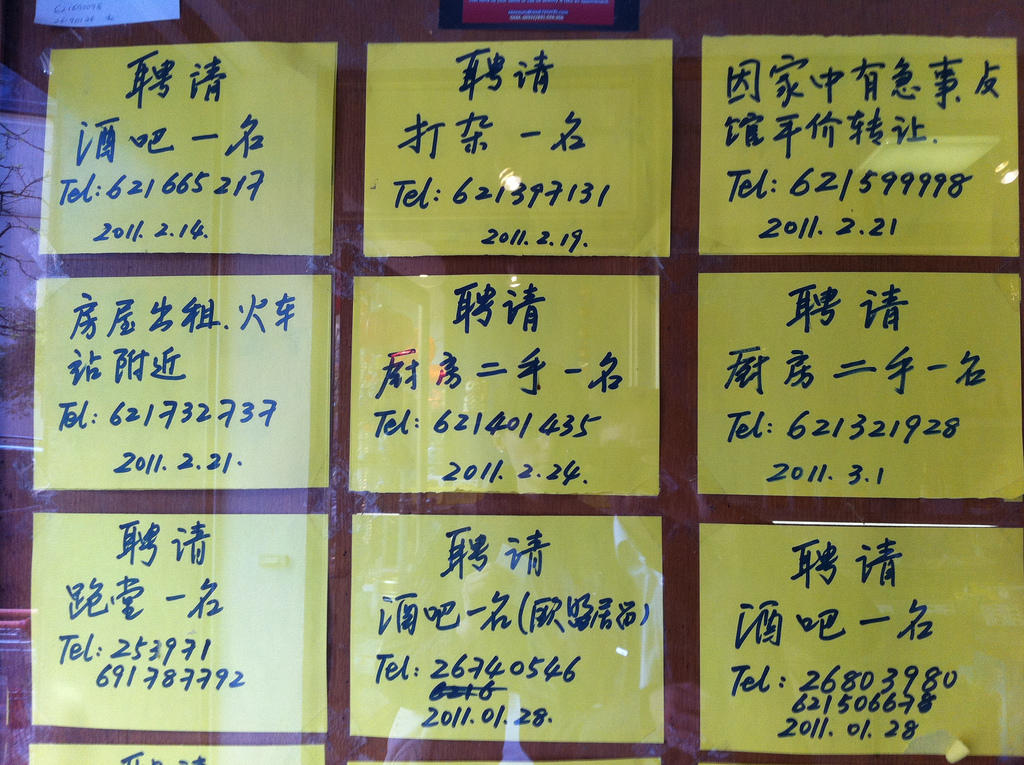 聘请
酒吧一名
Tel: 621665217
2011.2.14.
聘请
打杂一名
Tel: 621397131
2011.2.19.
因家中有急事,皮
馆平价转让.
Tel: 621599998
2011.2.21
房屋出租.火车
站附近
Tel: 621732737
2011.2.21.
聘请
厨房二手一名
Tel: 621401435
2011.2.24.
聘请
厨房二手一名
Tel: 621321928
2011.3.1
聘请
跑堂一名
Tel: 253971
691787792
聘请
酒吧一名(欧盟居留)
Tel: 26740546
2011.01.28.
聘请
酒吧一名
Tel: 26803980
621506678
2011.01.28
聘请